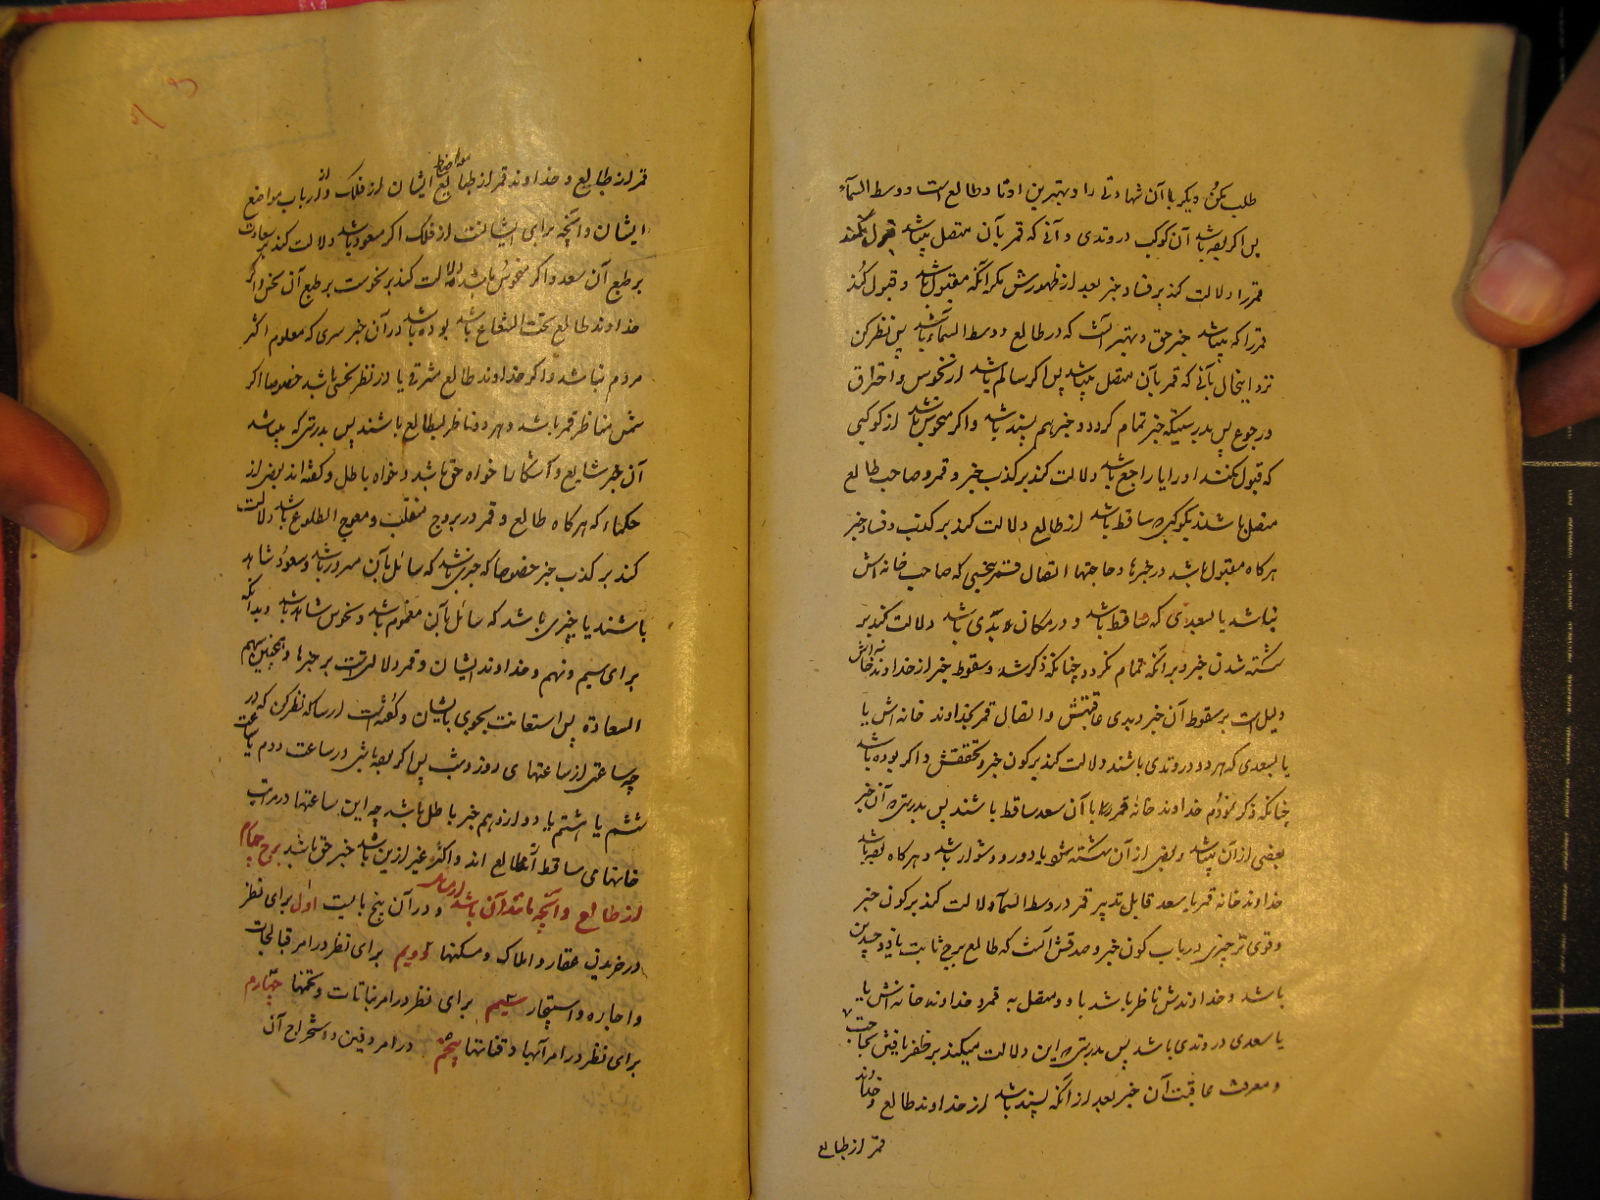 طلب کن دیگر با آن شهادتی را و بهترین اوتاد طالع است و وسط السمآء
پس اگر بوده باشد آن کوکب در وتدی و آنی که قمر بآن متصل میباشد قبول نکند
قمر را دلالت کند بر فساد خبر بعد از ظهورش مگر آنکه مقبول باشد و قبول کند
قمر را که میباشد خبر حق و بهتر آنست که در طالع و وسط السمآء باشد پس نظر کن
نزد اینحال بآنی که قمر بآن متصل میباشد پس اگر سالم باشد از نحوس و احتراق
و رجوع پس بدرستیکه خبر تمام گردد و خبر هم پسند باشد و اگر منحوس باشد از کوکبی
که قبول نکند او را یا راجع باشد دلالت کند بر کذب خبر و قمر و صاحب طالع
متصل باشند بکوکبی که ساقط باشد از طالع دلالت کند بر کذب و فساد خبر
هرگاه مقبول باشد در خبرها و حاجتها اتصال قمر بنحسی که صاحب خانه اش
نباشد یا بسعدی که ساقط باشد و در مکان بدی باشد دلالت کند بر
شکسته شدن خبر و بر آنکه تمام نگردد چنانکه ذکر شد و سقوط خبر از خداوند خانه اش
دلیل است بر سقوط آن خبر و بدی عاقبتش و اتصال قمر بخداوند خانه اش یا
یا بسعدی که هر دو در وتدی باشند دلالت کند بر کون خبر و تحققش و اگر بوده باشد
چنانکه ذکر نمودم خداوند خانه قمر یا با آن سعد ساقط باشند پس بدرستی که آن خبر
بعضی از آن میباشد و بعضی از آن شکسته شود یا دور و دشوار باشد و هرگاه بوده باشد
خداوند خانه قمر یا سعد قابل تدبیر قمر در وسط السمآء دلالت کند بر کون خبر
و قوی تر چیزی در باب کون خبر و صدقش آنست که طالع برج ثابت یا ذو جسدین
باشد و خداوندش ناظر باشد باو و متصل به قمر و خداوند خانه اش یا
یا سعدی در وتدی باشد پس بدرستی که این دلالت میکند بر ظفر یافتن بحاجت
و معرفت عاقبت آن خبر بعد از آنکه پسند باشد از خداوند طالع و خداوند
قمر از طالع
قمر از طالع و خداوند قمر از طالع و مواضع ایشان از فلک و از ارباب مواضع
ایشان و آنچه برای ایشانست از فلک اگر مسعود باشد دلالت کند بر سعادت
بر طبع آن سعد و اگر منحوس باشد دلالت کند بر نحوست بر طبع آن نحس و اگر
خداوند طالع تحت الشعاع باشد بوده باشد در آن خبر سری که معلوم اکثر
مردم نباشد و اگر خداوند طالع مشرقی یا از نظر نحسی باشد خصوصا اگر
شمس مناظر قمر باشد و هر دو ناظر بطالع باشند پس بدرستی که میباشد
آن خبر شایع و آشکارا خواه حق باشد و خواه باطل و گفته اند بعضی از
حکماء که هرگاه طالع و قمر در بروج منقلب و معوج الطلوع باشد دلالت
کند بر کذب خبر خصوصا که خبری باشد که سائل بآن مسرور باشد و سعود شاهد
باشند یا چیزی باشد که سائل بآن مغموم باشد و نحوس شاهد باشد و بدانکه
برای سیم و نهم و خداوند ایشان و قمر دلالت است بر خبرها و همچنین سهم
السعادة پس استعانت بجوی بایشان و گفته است ارساکه نظر کن که در
چه ساعتی از ساعتهای روز و شب پس اگر بوده باشی در ساعت دوم یا ساعت
ششم یا هشتم یا دوازدهم خبر باطل باشد چه این ساعتها در مراتب
خانهای ساقط از طالع اند و اگر غیر از این باشد خبر حق باشد برج چهارم
از طالع و آنچه مانند آن باشد و در آن پنج بابست اول برای نظر
در خریدن عقار و املاک و مسکنها دویم برای نظر در امر قبالجات
و اجاره و استیجار سیم برای نظر در امر نباتات و تخمها چهارم
برای نظر در امر آبها و قناتها پنجم در امر دفین و استخراج آن